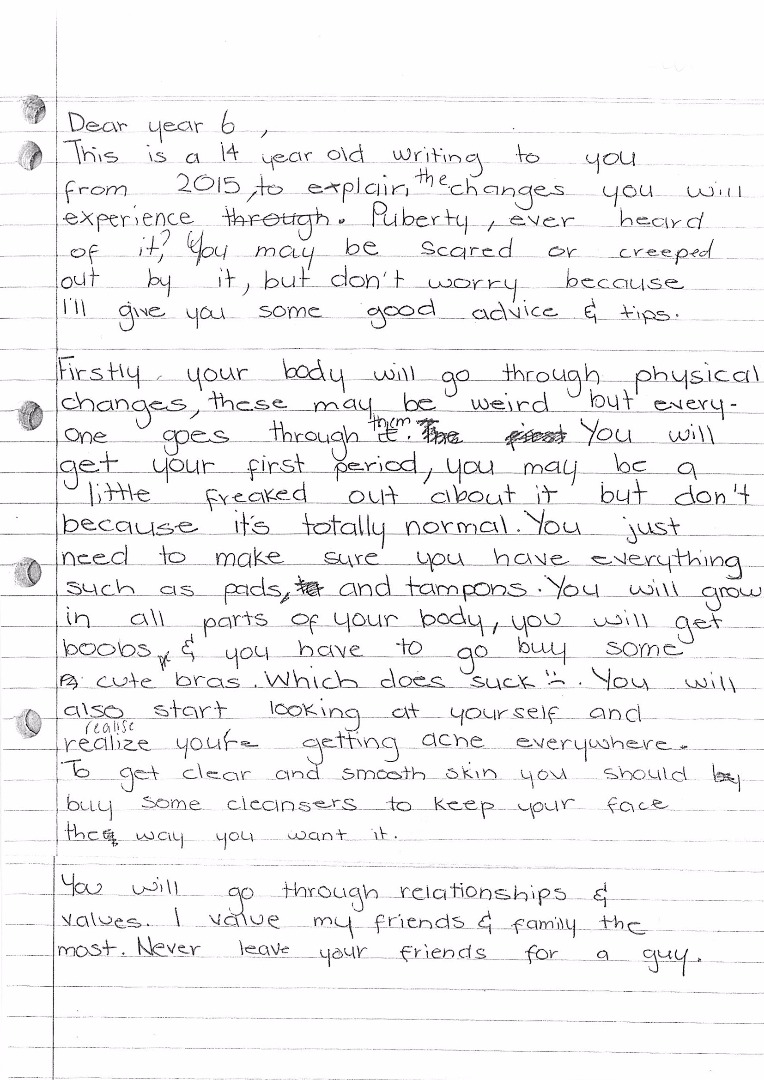 Dear year 6 ,
This is a 14 year old writing to you
from 2015, to explain, the changes you will
experience through. Puberty, ever heard
of it? You may be scared or creeped
out by it, but don't worry because
I'll give you some good advice & tips.
Firstly, your body will go through physical
changes, these may be weird but every-
one goes through them. You will
get your first period, you may be a
little freaked out about it but don't
because it's totally normal. You just
need to make sure you have everything
such as pads, and tampons. You will grow
in all parts of your body, you will get
boobs, & you have to go buy some
cute bras. Which does suck. You will
also start looking at yourself and
realise
realize you're getting acne everywhere.
To get clear and smooth skin you should
buy some cleansers to keep your face
the way you want it.
You will go through relationships &
values. I value my friends & family the
most. Never leave your friends for a guy.